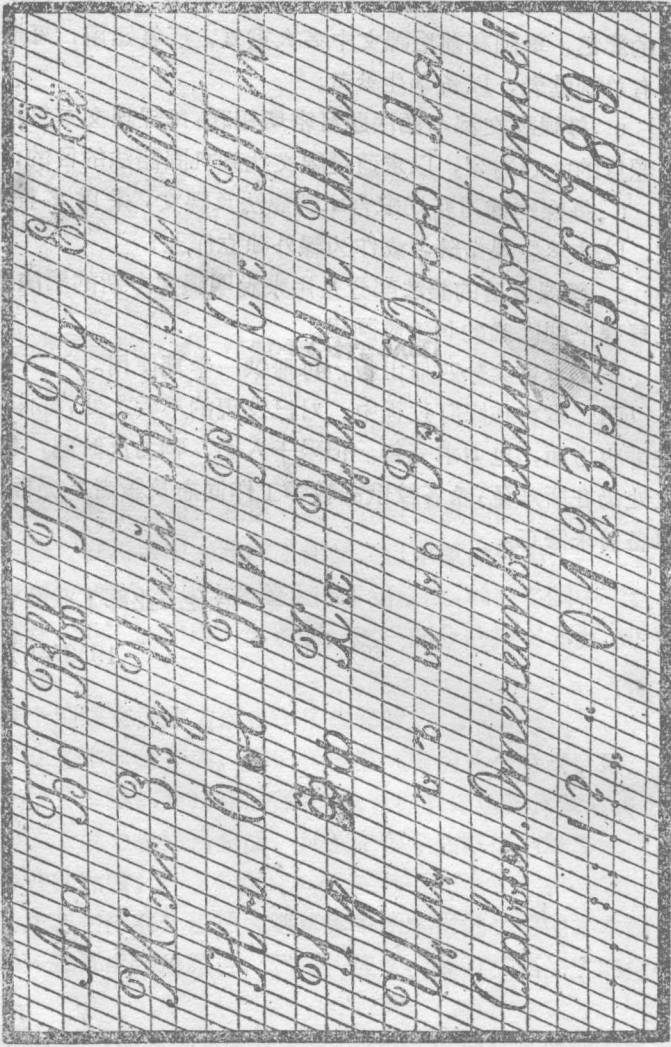 Аа Бб Вв Гг. Дд Ее Ёё
Жж Ззз Ии й Кк Лл Мм
Нн Оо Пп Рр Сс Тт
Уу Фф Хх Цц Чч Шш
Щщ ъъ ы ьь Ээ Юю Яя
Славься, Отечество наше свободное!
. , : ; ! ? „ “ 0 1 2 3 3 4 5 6 7 8 9